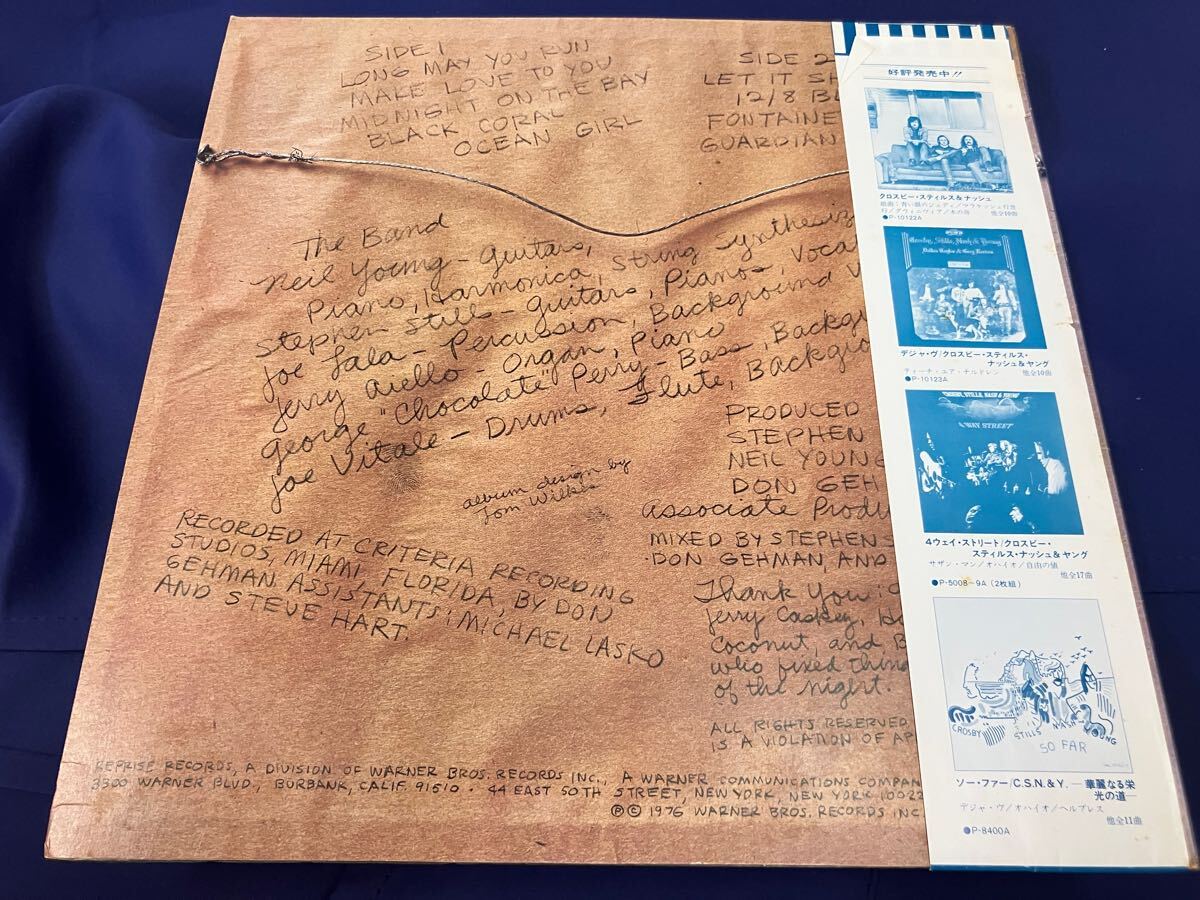 SIDE 1
LONG MAY YOU RUN
MAKE LOVE TO YOU
MIDNIGHT ON THE BAY
BLACK CORAL
OCEAN GIRL
SIDE 2
LET IT SH
12/8 BL
FONTAINE
GUARDIAN
The Band
Neil Young - Guitars,
Piano, Harmonica, String Synthesiz
Stephen Stills - Guitars, Pianos, Voca
Joe Lala - Percussion, Background V
Jerry Aiello - Organ, Piano
George "Chocolate" Perry - Bass, Backgr
Joe Vitale - Drums, Flute, Backgro
album design by
Tom Wilkes
PRODUCED
STEPHEN
NEIL YOUNG
DON GEH
Associate Produ
MIXED BY STEPHEN S
DON GEHMAN, AND
RECORDED AT CRITERIA RECORDING
STUDIOS, MIAMI, FLORIDA, BY DON
GEHMAN. ASSISTANTS: MICHAEL LASKO
AND STEVE HART.
Thank You:
Jerry Caskey, H
Coconut, and B
who fixed thing
of the night.
ALL RIGHTS RESERVED
IS A VIOLATION OF AP
REPRISE RECORDS, A DIVISION OF WARNER BROS. RECORDS INC., A WARNER COMMUNICATIONS COMPAN
3300 WARNER BLVD., BURBANK, CALIF. 91510 · 44 EAST 50TH STREET, NEW YORK, NEW YORK 10022
Ⓟ © 1976 WARNER BROS. RECORDS INC.
好評発売中!!
クロスビー・スティルス&ナッシュ
組曲:青い眼のジュディ/マラケッシュ行急
行/グウィニヴィア/木の舟 他全10曲
●P-10122A
Crosby, Stills, Nash & Young
Dallas Taylor & Greg Reeves
デジャ・ヴ/クロスビー・スティルス・
ナッシュ&ヤング
ティーチ・ユア・チルドレン 他全10曲
●P-10123A
CROSBY, STILLS, NASH & YOUNG
4 WAY STREET
4ウェイ・ストリート/クロスビー・
スティルス・ナッシュ&ヤング
サザン・マン/オハイオ/自由の値
他全17曲
●P-5008~9A(2枚組)
CROSBY STILLS NASH YOUNG
SO FAR
ソー・ファー/C.S.N.&Y. —華麗なる栄
光の道—
デジャ・ヴ/オハイオ/ヘルプレス
他全11曲
●P-8400A